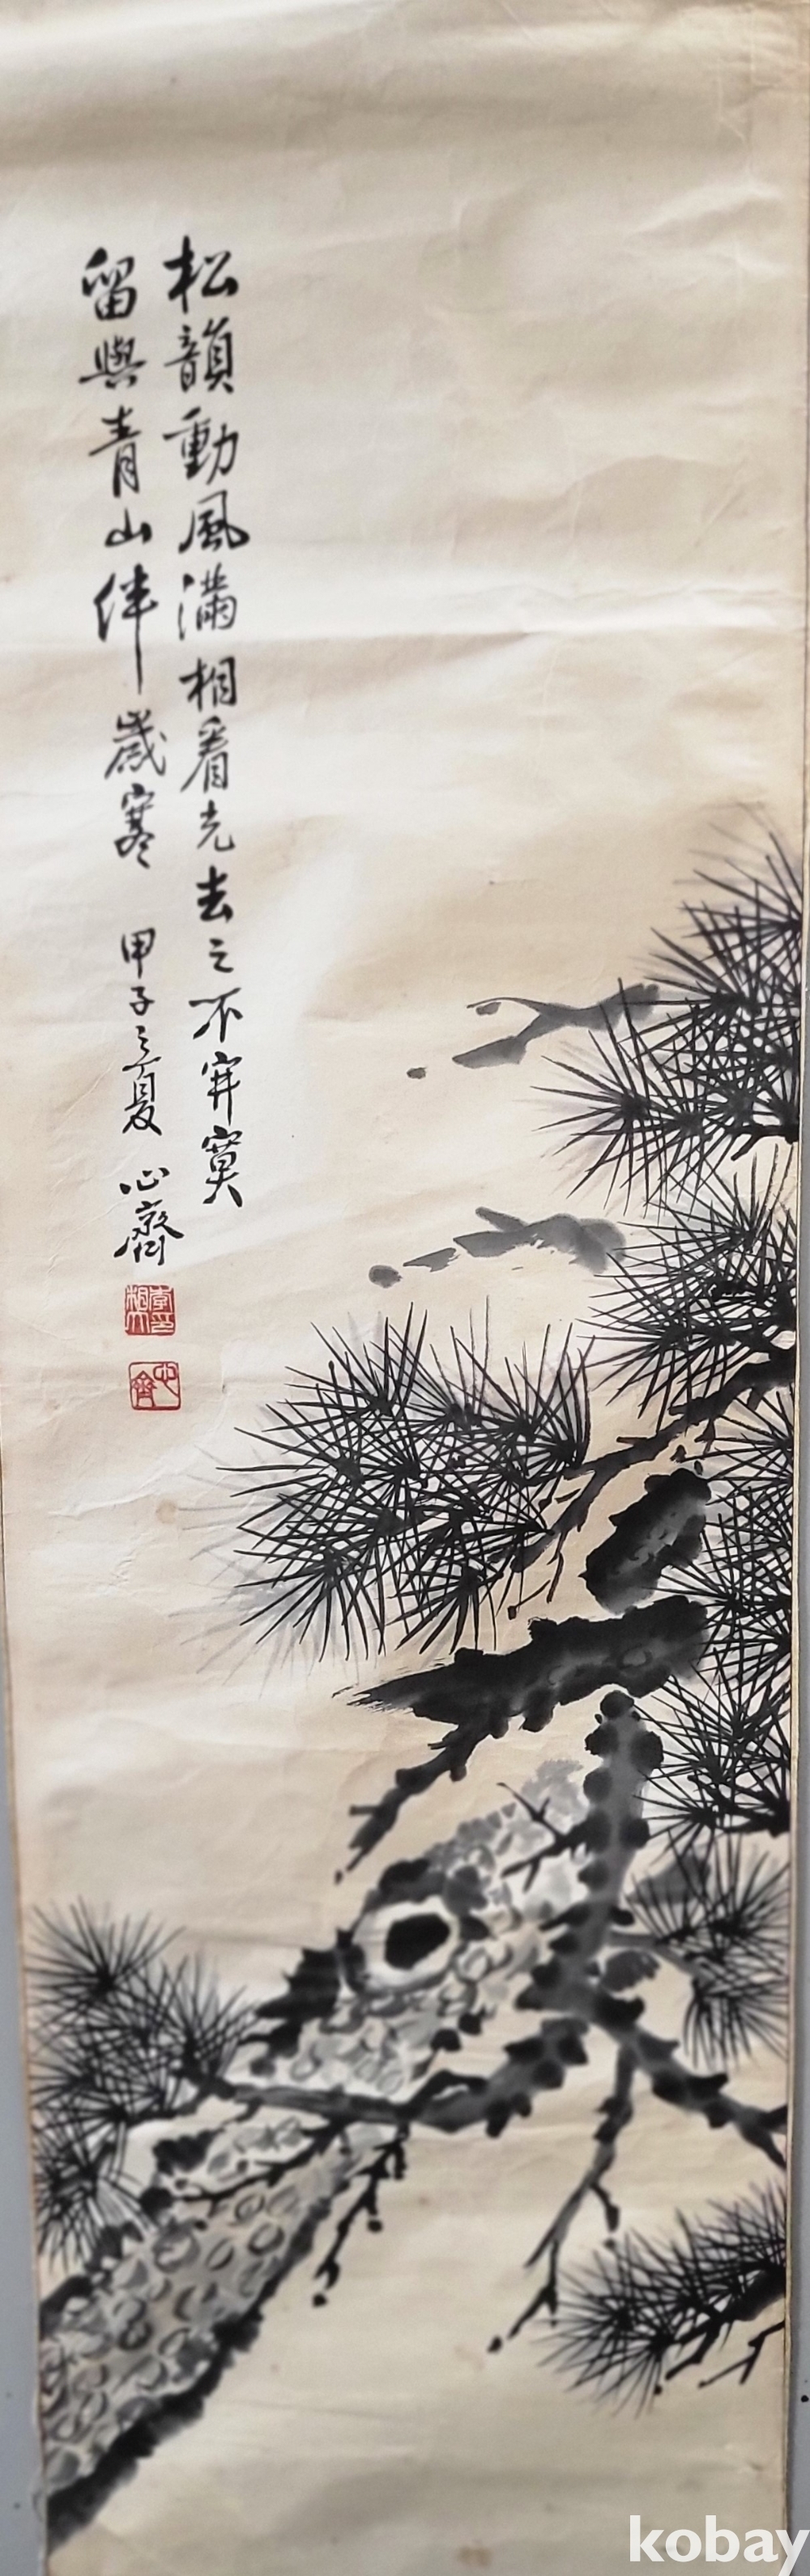 松韻動風滿相看老去之不寂寞
留與青山伴歲寒 甲子之夏 心齋
心齋
kobay